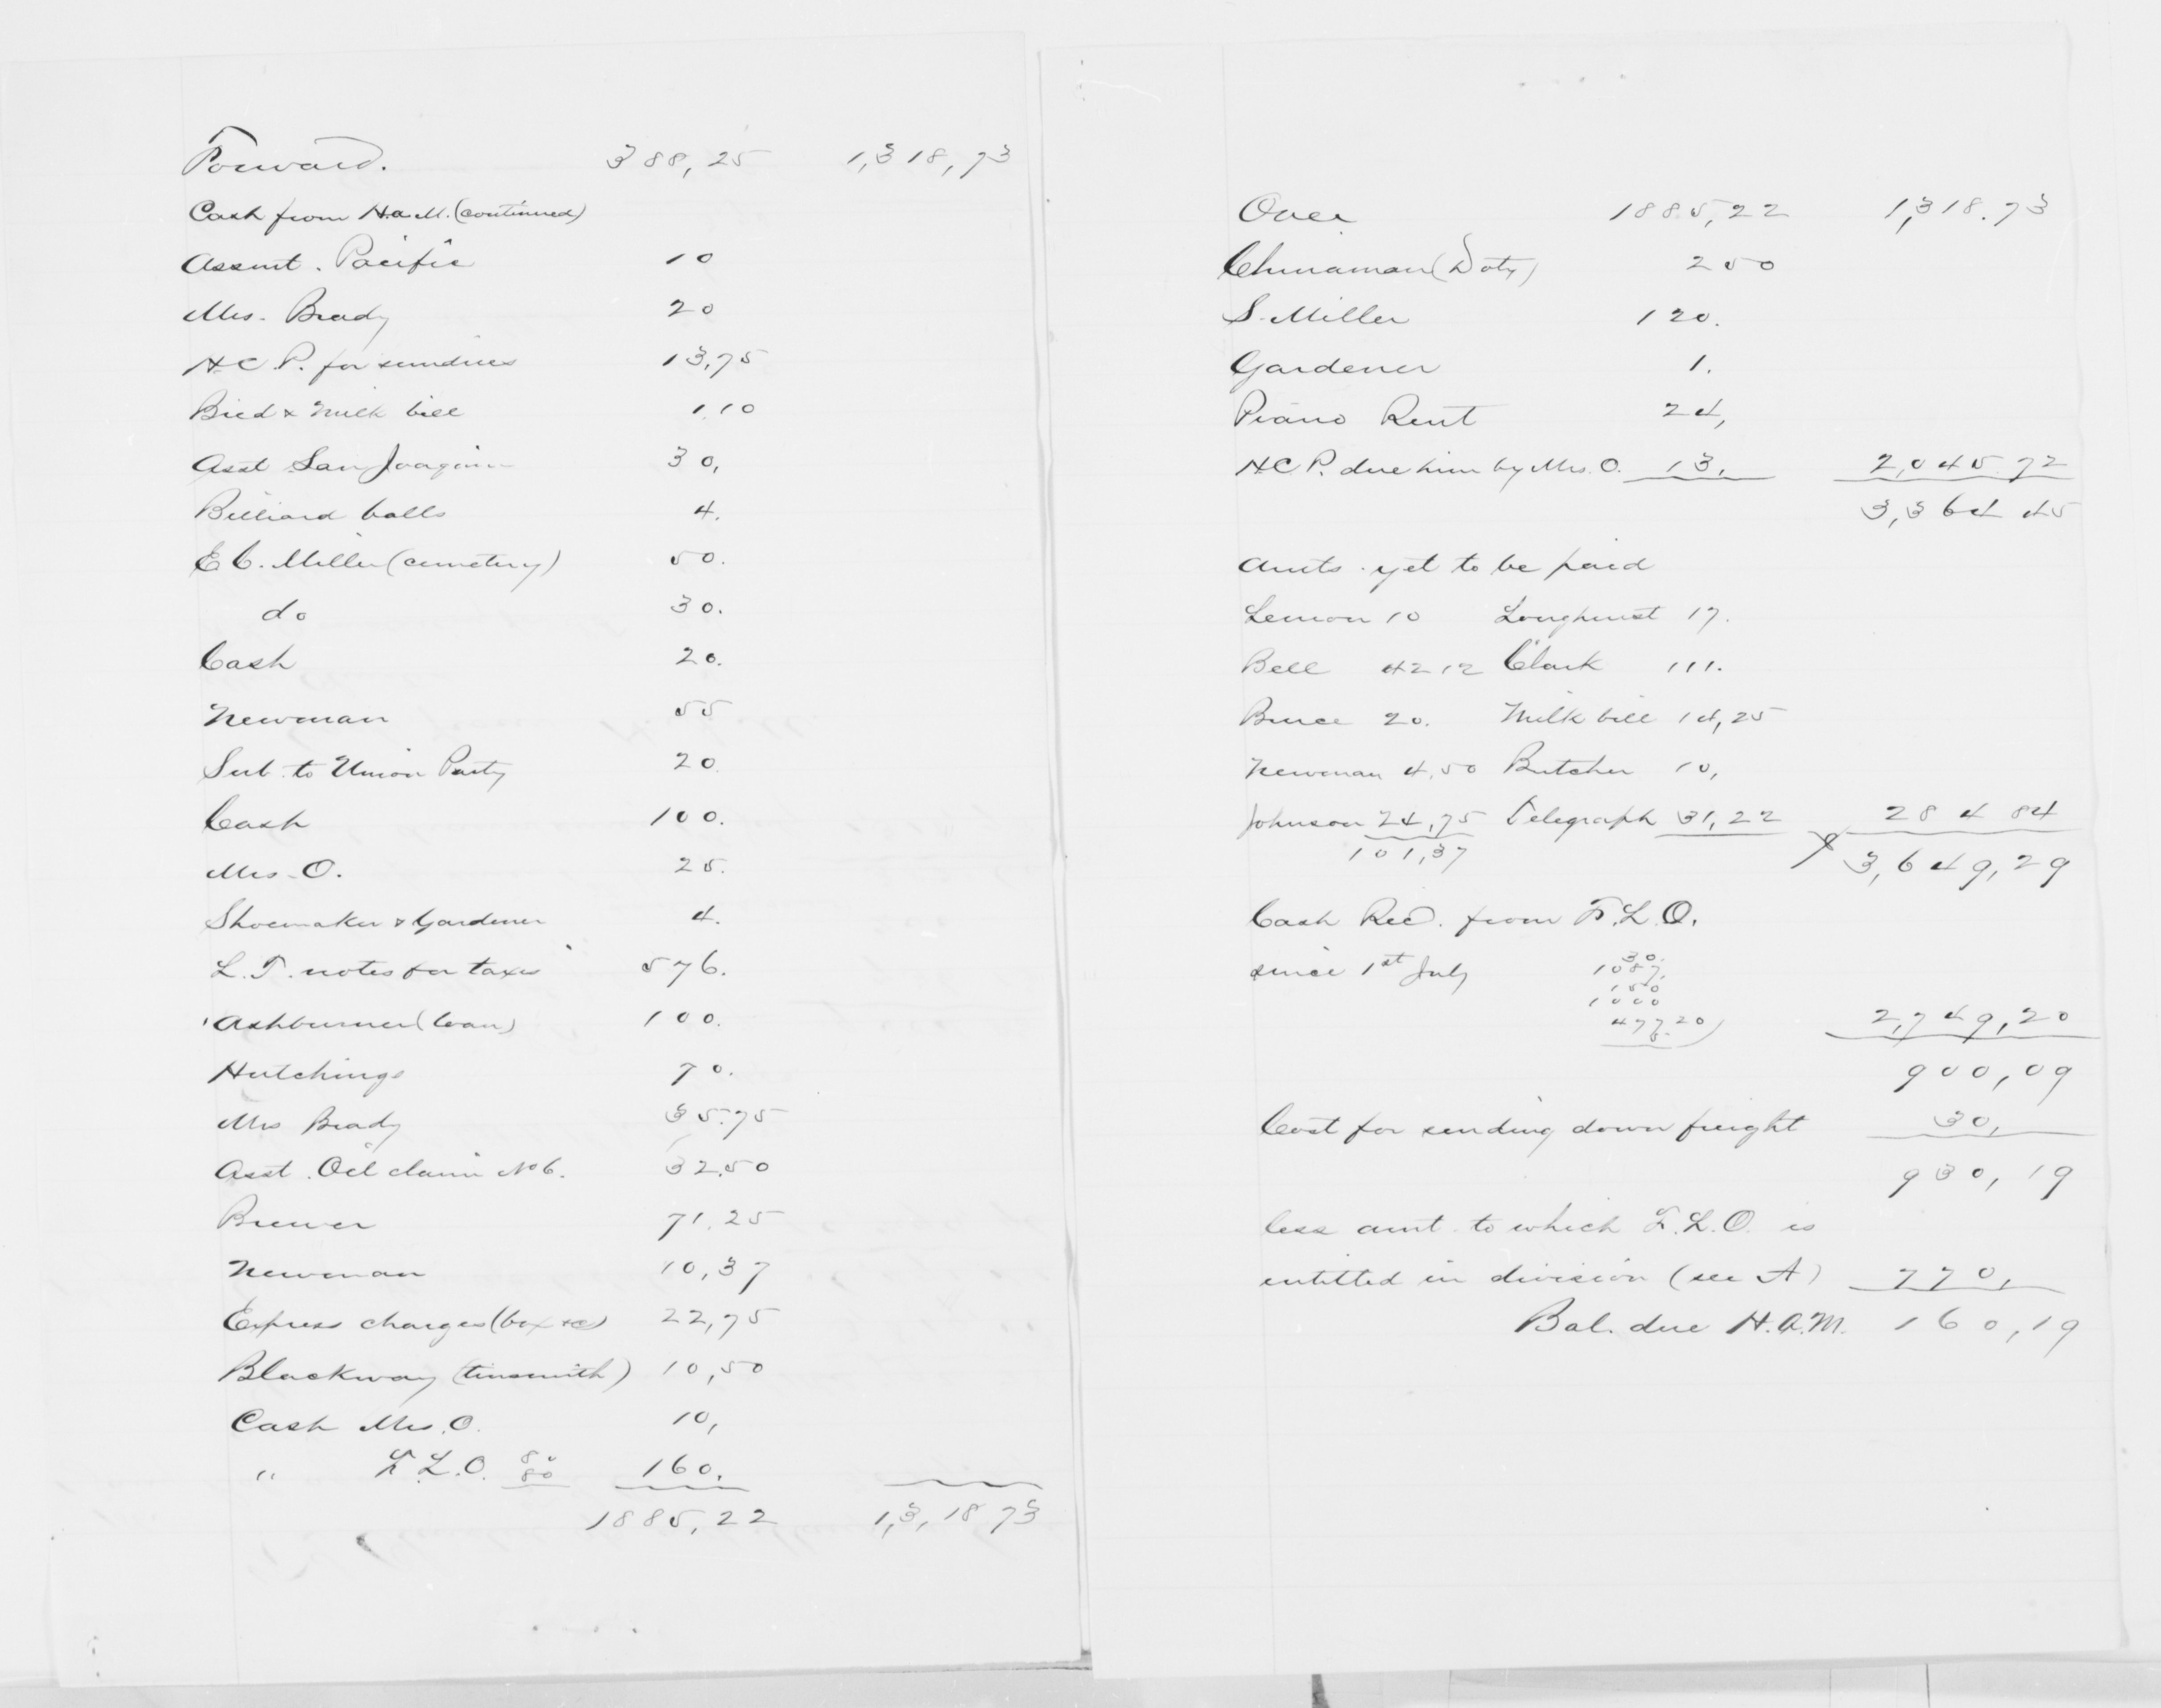 Forward. 388,25 1,318,73
Cash from H.a.M. (continued)
Assmt. Pacific 10
Mrs. Brady 20
H.C.P. for sundries 13,75
Bird & Milk bill 1.10
Asst San Joaquin 30,
Billiard balls 4.
E C. Miller (cemetery) 50.
do 30.
Cash 20.
Newman 55
Sub. to Union Party 20
Cash 100.
Mrs. O. 25.
Shoemaker & Gardener 4.
L.T. notes for taxes 576.
Ashburner (loan) 100.
Hutchings 70.
Mrs Brady 35.75
Asst. Oil claim No 6. 32.50
Brewer 71.25
Newman 10,37
Express charges (box &c) 22,75
Blackway (tinsmith) 10,50
Cash Mrs. O. 10,
" F.L.O. 80 80 160.
1885,22 1,3,18 73
Over 1885,22 1,318.73
Chinaman (Doty) 250
S. Miller 120.
Gardener 1.
Piano Rent 24,
H.C.P. due him by Mrs. O. 13. 2,045 72
3,364 45
Amts. yet to be paid
Lemon 10 Longhurst 17.
Bell 42 12 Clark 111.
Bruce 20. Milk bill 14,25
Newman 4,50 Butcher 10,
Johnson 24,75 Telegraph 31,22 284 84
101,37 3,649,29
Cash Rec'd. from F.L.O.
since 1st July 30.
1087.
150
1000
477 20
5. 2,749,20
900,09
Cost for sending down freight 30,
930,19
less amt. to which F.L.O. is
entitled in division (see A) 770,
Bal. due H.A.M. 160,19